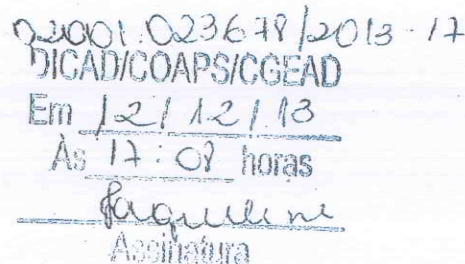 02001.023678/2013-17
DICAD/COAPS/CGEAD
Em 12/12/13
Às 17:08 horas
Jaqueline
Assinatura